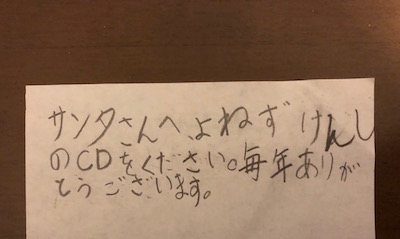 サンタさんへ、よねず けんし
のCDをください。毎年ありが
とうございます。